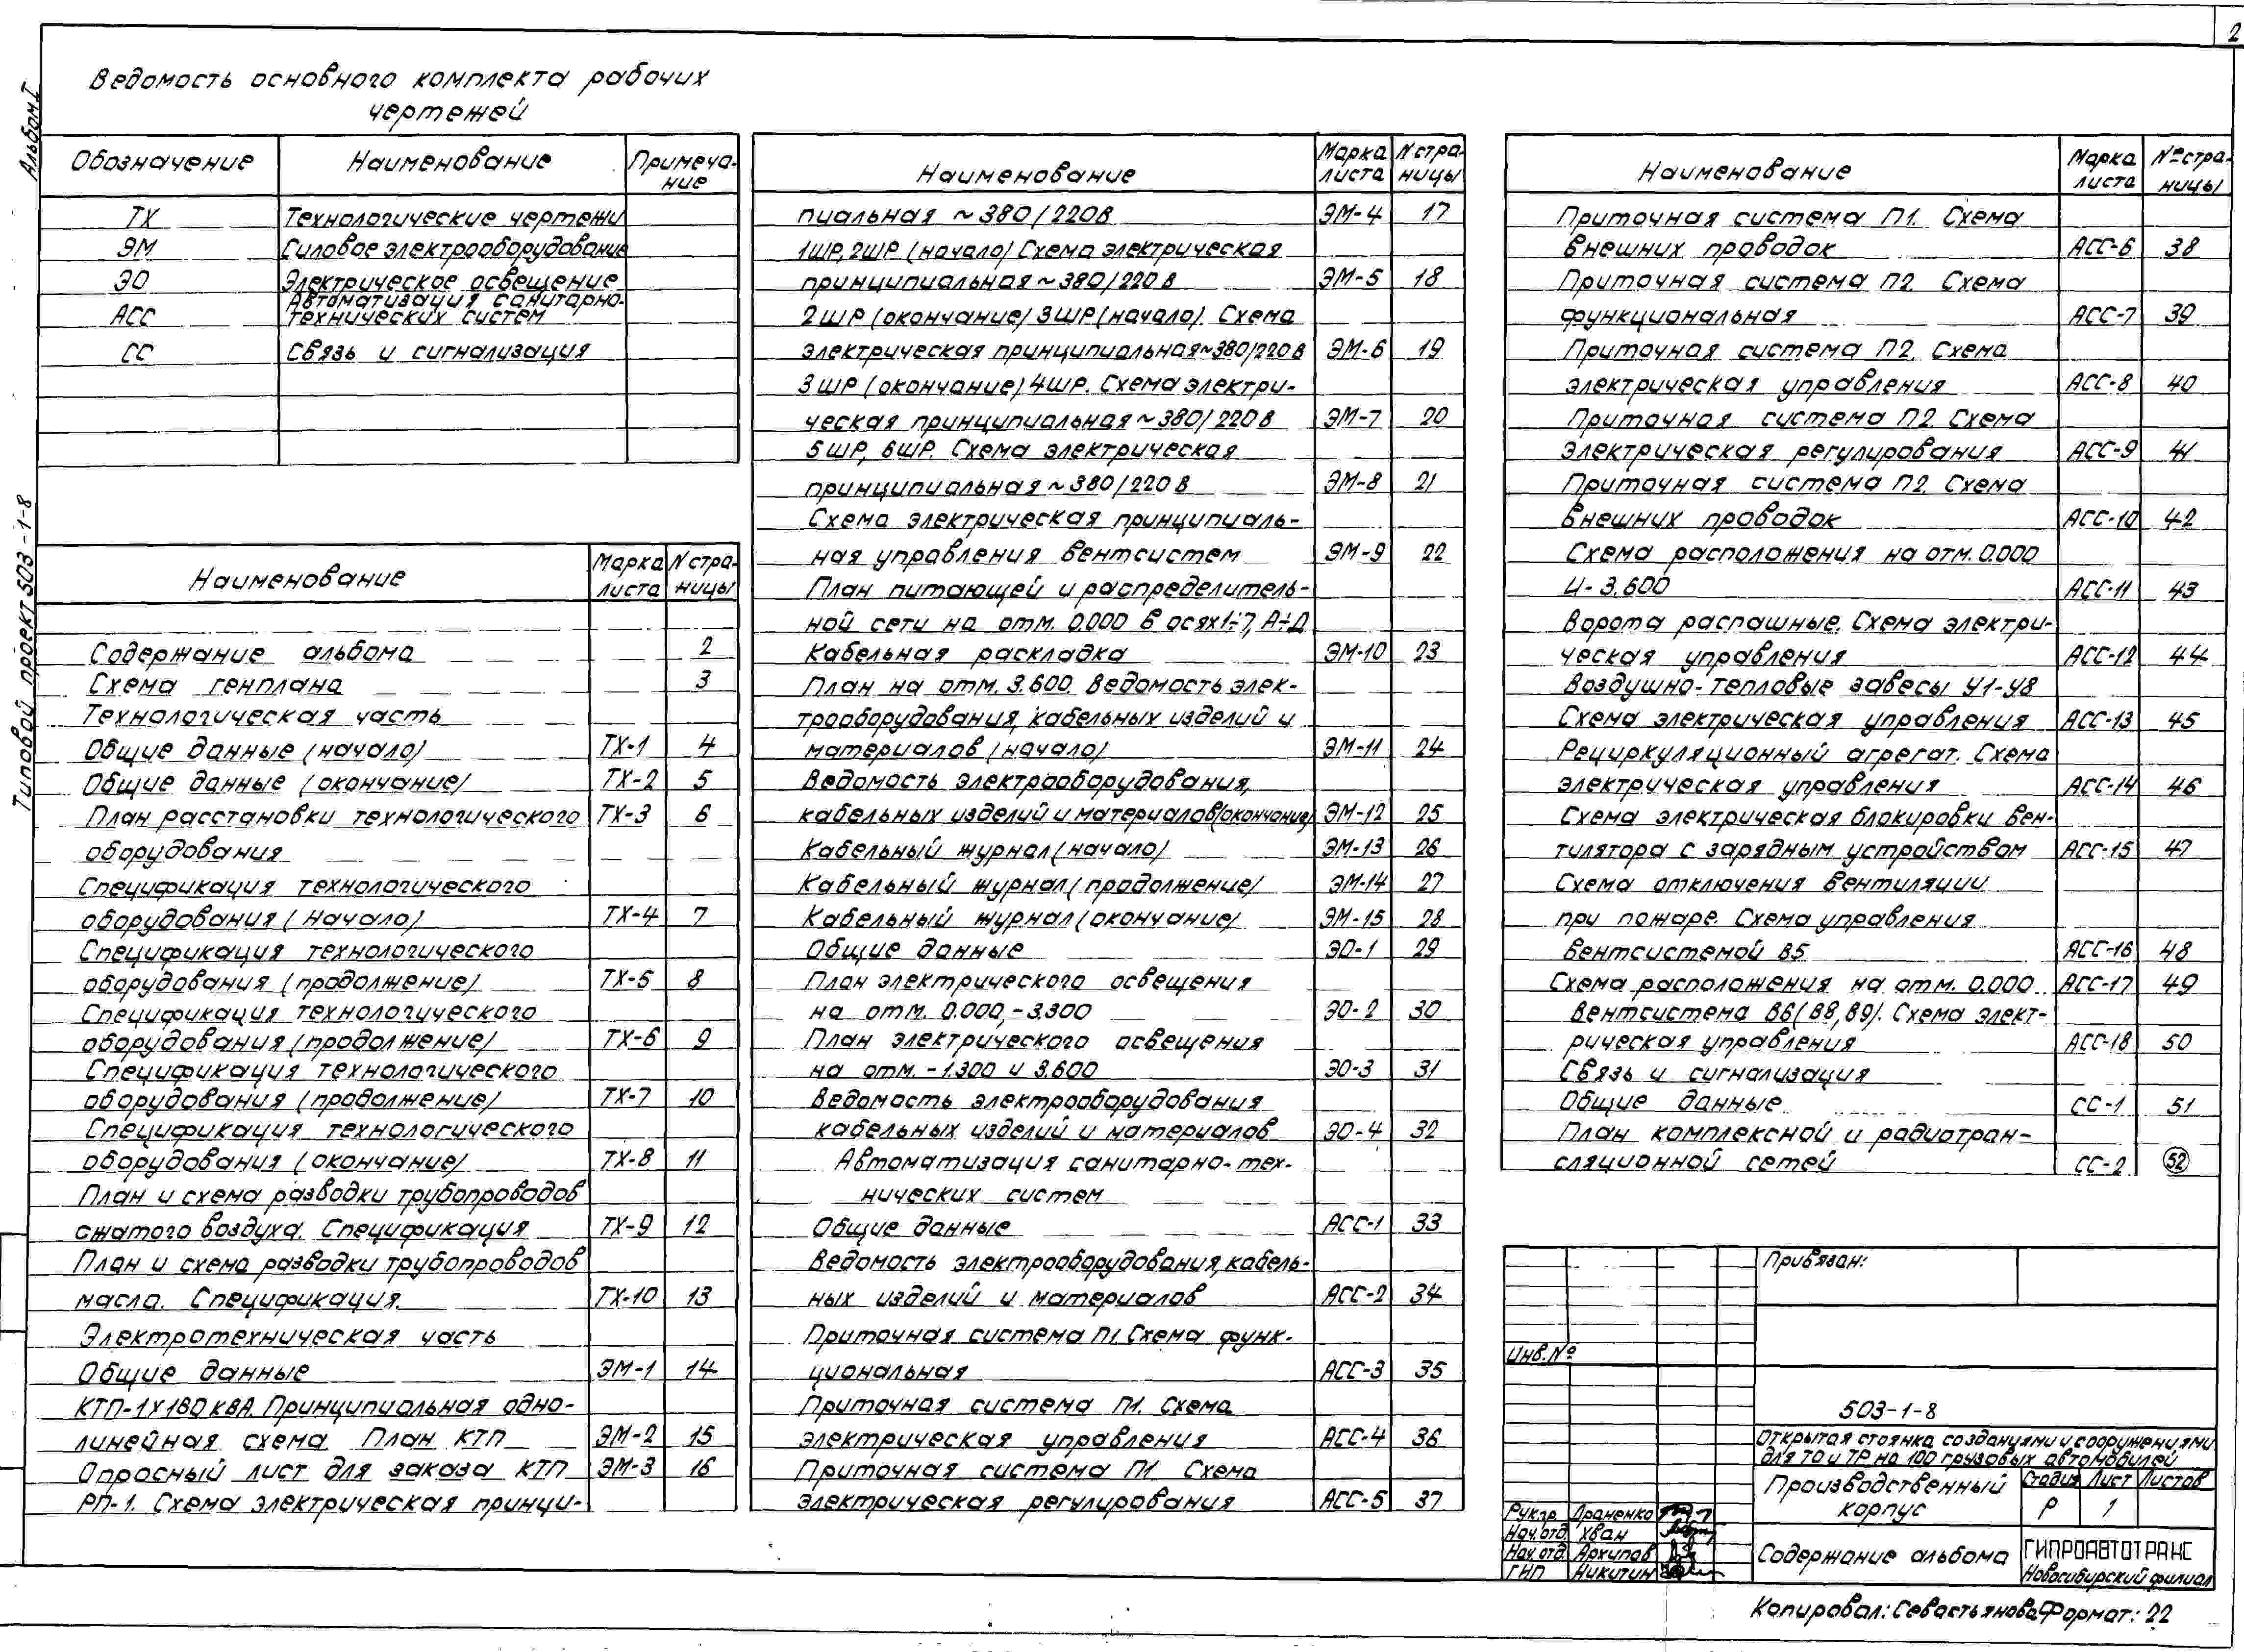 2
Альбом I
Типовой проект 503-1-8
Ведомость основного комплекта рабочих
чертежей
Обозначение Наименование Примеча-
ние
ТХ Технологические чертежи
ЭМ Силовое электрооборудование
ЭО Электрическое освещение
АСС Автоматизация санитарно-
технических систем
СС Связь и сигнализация
Наименование Марка листа N страницы
Содержание альбома 2
Схема генплана 3
Технологическая часть
Общие данные (начало) ТХ-1 4
Общие данные (окончание) ТХ-2 5
План расстановки технологического ТХ-3 6
оборудования
Спецификация технологического
оборудования (начало) ТХ-4 7
Спецификация технологического
оборудования (продолжение) ТХ-5 8
Спецификация технологического
оборудования (продолжение) ТХ-6 9
Спецификация технологического
оборудования (продолжение) ТХ-7 10
Спецификация технологического
оборудования (окончание) ТХ-8 11
План и схема разводки трубопроводов
сжатого воздуха. Спецификация ТХ-9 12
План и схема разводки трубопроводов
масла. Спецификация. ТХ-10 13
Электротехническая часть
Общие данные ЭМ-1 14
КТП-1х160 кВА. Принципиальная одно-
линейная схема План КТП ЭМ-2 15
Опросный лист для заказа КТП ЭМ-3 16
РП-1. Схема электрическая принци-
Наименование Марка листа N страницы
пиальная ~380/220В ЭМ-4 17
1ШР, 2ШР (начало) Схема электрическая
принципиальная ~380/220 В ЭМ-5 18
2ШР (окончание) 3ШР (начало). Схема
электрическая принципиальная~380/220 В ЭМ-6 19
3ШР (окончание) 4ШР. Схема электри-
ческая принципиальная ~380/220 В ЭМ-7 20
5ШР, 6ШР. Схема электрическая
принципиальная ~380/220 В ЭМ-8 21
Схема электрическая принципиаль-
ная управления вентсистем ЭМ-9 22
План питающей и распределитель-
ной сети на отм. 0.000 в осях 1÷7, А÷Д
Кабельная раскладка ЭМ-10 23
План на отм. 3.600. Ведомость элек-
трооборудования, кабельных изделий и
материалов (начало) ЭМ-11 24
Ведомость электрооборудования,
кабельных изделий и материалов(окончание) ЭМ-12 25
Кабельный журнал (начало) ЭМ-13 26
Кабельный журнал (продолжение) ЭМ-14 27
Кабельный журнал (окончание) ЭМ-15 28
Общие данные ЭО-1 29
План электрического освещения
на отм. 0.000, -3.300 ЭО-2 30
План электрического освещения
на отм. -1.300 и 3.600 ЭО-3 31
Ведомость электрооборудования
кабельных изделий и материалов ЭО-4 32
Автоматизация санитарно-тех-
нических систем
Общие данные АСС-1 33
Ведомость электрооборудования, кабель-
ных изделий и материалов АСС-2 34
Приточная система П1. Схема функ-
циональная АСС-3 35
Приточная система П1. Схема
электрическая управления АСС-4 36
Приточная система П1 Схема
электрическая регулирования АСС-5 37
Наименование Марка листа №страницы
Приточная система П1. Схема
внешних проводок АСС-6 38
Приточная система П2. Схема
функциональная АСС-7 39
Приточная система П2. Схема
электрическая управления АСС-8 40
Приточная система П2. Схема
электрическая регулирования АСС-9 41
Приточная система П2. Схема
внешних проводок АСС-10 42
Схема расположения на отм. 0.000
и- 3.600 АСС-11 43
Ворота распашные. Схема электри-
ческая управления АСС-12 44
Воздушно-тепловые завесы У1-У8
Схема электрическая управления АСС-13 45
Рециркуляционный агрегат. Схема
электрическая управления АСС-14 46
Схема электрическая блокировки вен-
тилятора с зарядным устройством АСС-15 47
Схема отключения вентиляции
при пожаре. Схема управления
вентсистемой В5 АСС-16 48
Схема расположения на отм. 0.000 АСС-17 49
Вентсистема В6(В8, В9). Схема элект-
рическая управления АСС-18 50
Связь и сигнализация
Общие данные СС-1 51
План комплексной и радиотран-
сляционной сетей СС-2 52
Привязан:
Инв.№
503-1-8
Открытая стоянка со зданиями и сооружениями
для ТО и ТР на 100 грузовых автомобилей
Производственный
корпус
Стадия Лист Листов
Р 1
Рук.гр. Драненко
Нач.отд. Хван
Нач.отд. Архипов
ГИП Никитин
Содержание альбома
ГИПРОАВТОТРАНС
Новосибирский филиал
Копировал: Севастьянова Формат: 22